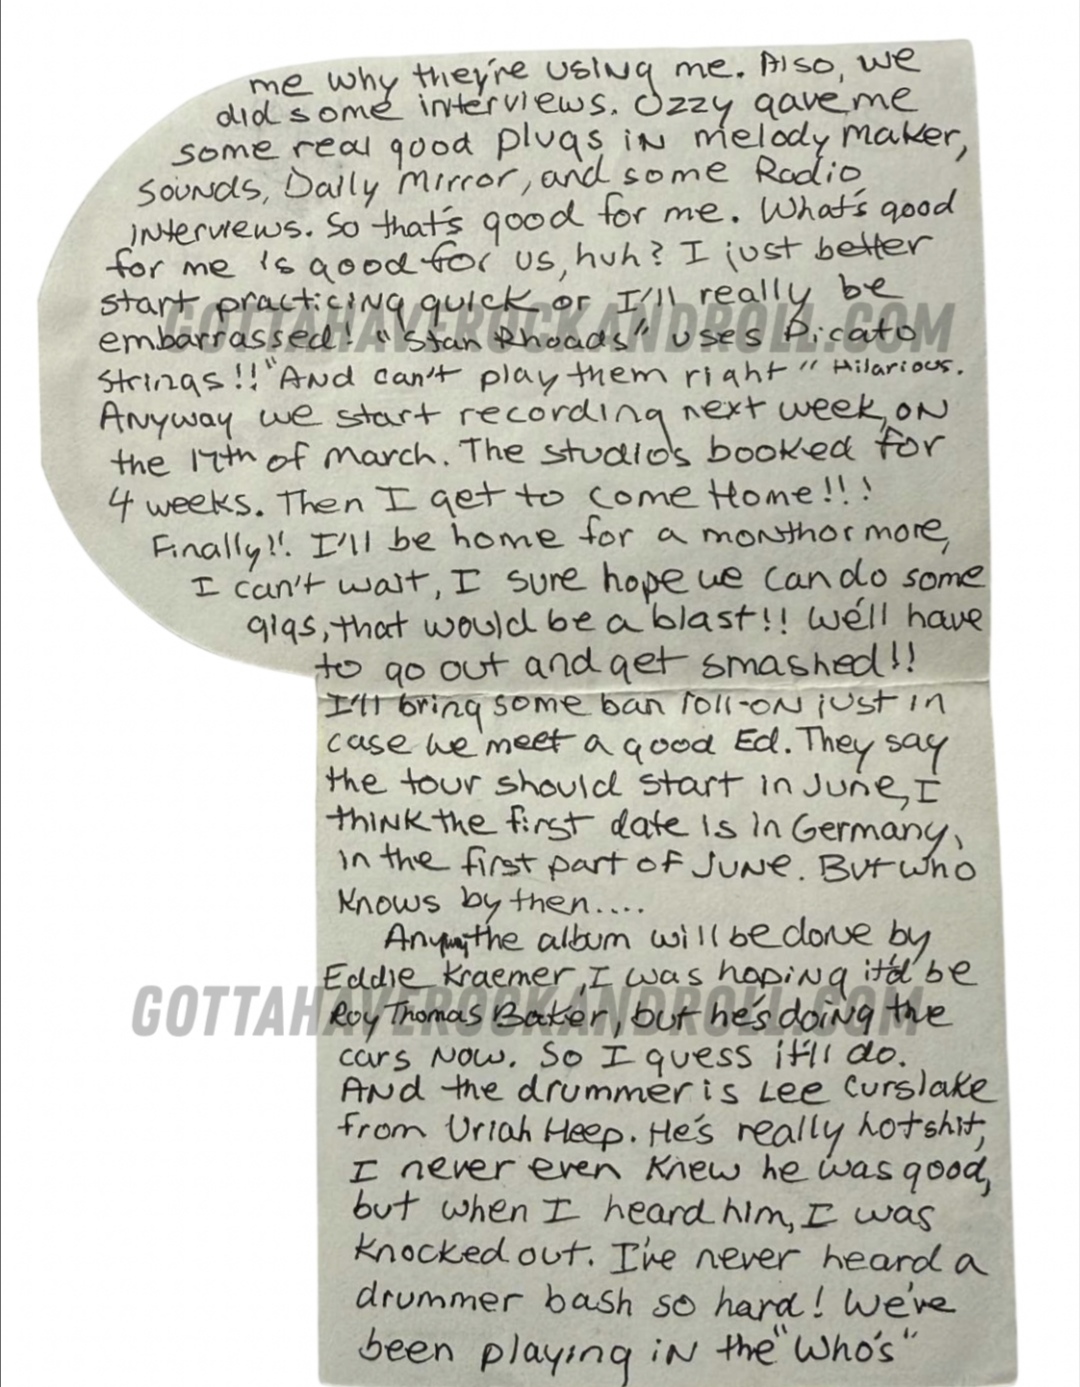 me why they're using me. Also, we
did some interviews. Ozzy gave me
some real good plugs in melody maker,
Sounds, Daily Mirror, and some Radio
interviews. So that's good for me. What's good
for me is good for us, huh? I just better
start practicing quick or I'll really be
embarrassed! "Stan Rhoads" uses Picato
strings!! "And can't play them right" Hilarious.
Anyway we start recording next week, on
the 17th of march. The studio's booked for
4 weeks. Then I get to come Home!!!
Finally!!. I'll be home for a month or more,
I can't wait, I sure hope we can do some
gigs, that would be a blast!! We'll have
to go out and get smashed!!
I'll bring some ban roll-on just in
case we meet a good Ed. They say
the tour should start in June, I
think the first date is in Germany,
in the first part of June. But who
knows by then....
Anyway the album will be done by
Eddie Kraemer, I was hoping it'd be
Roy Thomas Baker, but he's doing the
cars now. So I guess it'll do.
And the drummer is Lee Curslake
from Uriah Heep. He's really hotshit,
I never even knew he was good,
but when I heard him, I was
knocked out. I've never heard a
drummer bash so hard! We've
been playing in the "Who's"
GOTTAHAVEROCKANDROLL.COM
GOTTAHAVEROCKANDROLL.COM